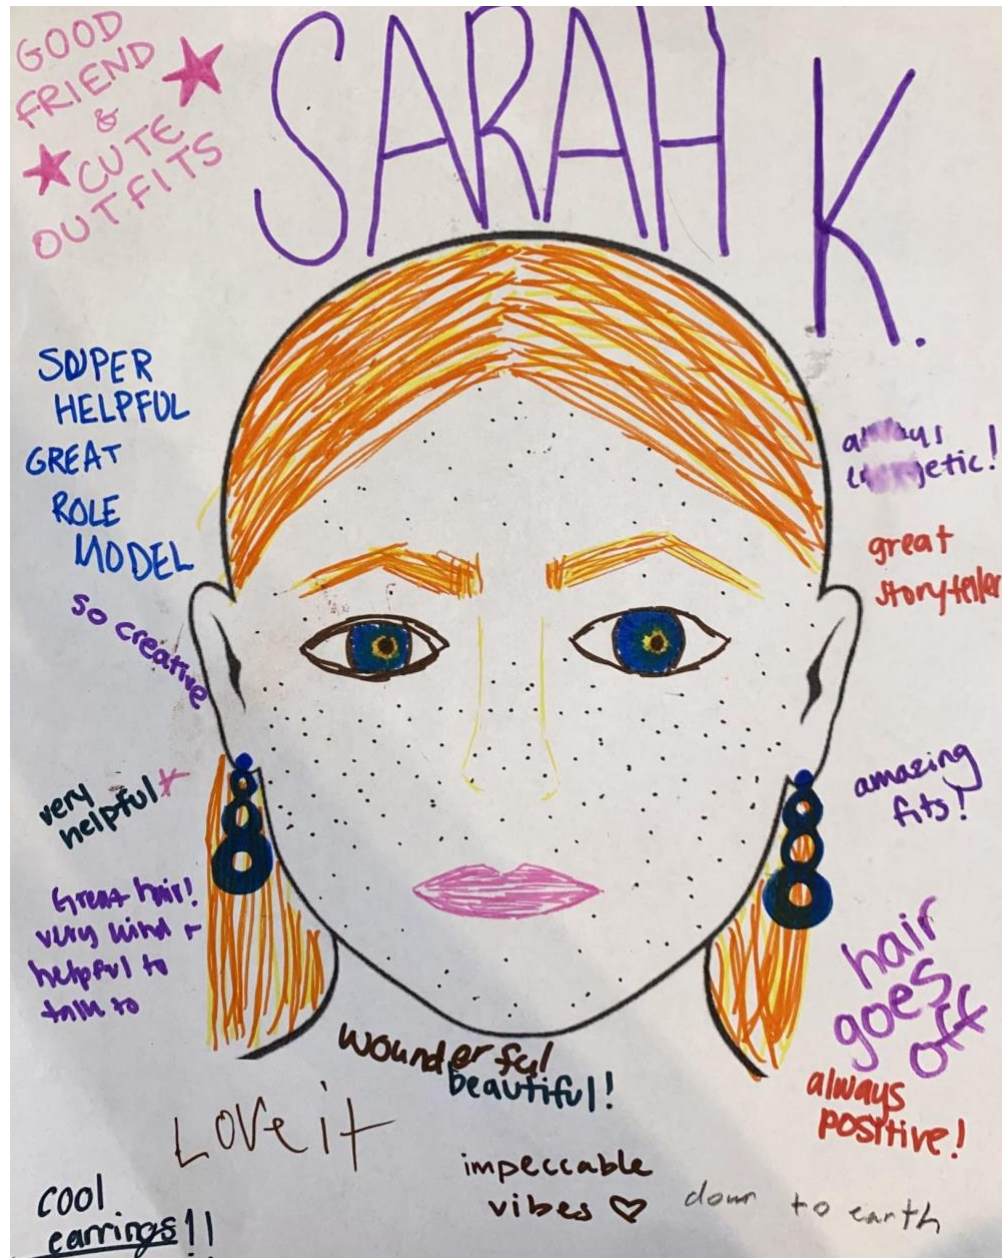 SARAH
K.
GOOD
FRIEND
&
CUTE
OUTFITS
SOUPER
HELPFUL
GREAT
ROLE
MODEL
so creative
very
helpful
Great hair!
very kind +
helpful to
talk to
always
energetic!
great
storyteller
amazing
fits!
hair
goes
off
always
positive!
wounderful
beautiful!
Love it
impeccable
vibes ♡
down to earth
cool
earrings!!